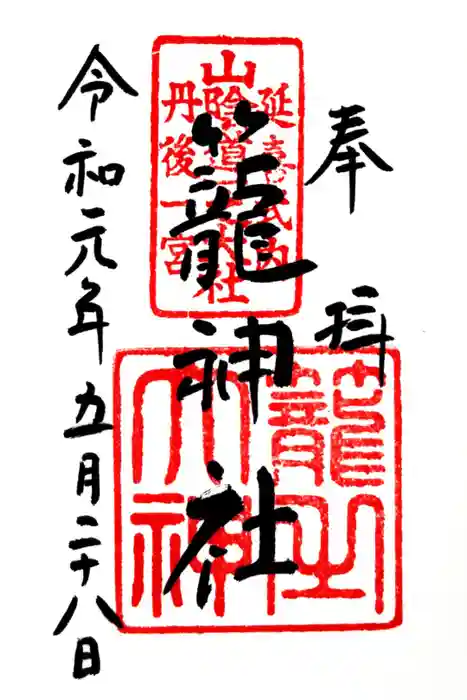 奉拝
延喜式内
山陰道一之大社
丹後一宮
籠神社
籠之大神
令和元年五月二十八日